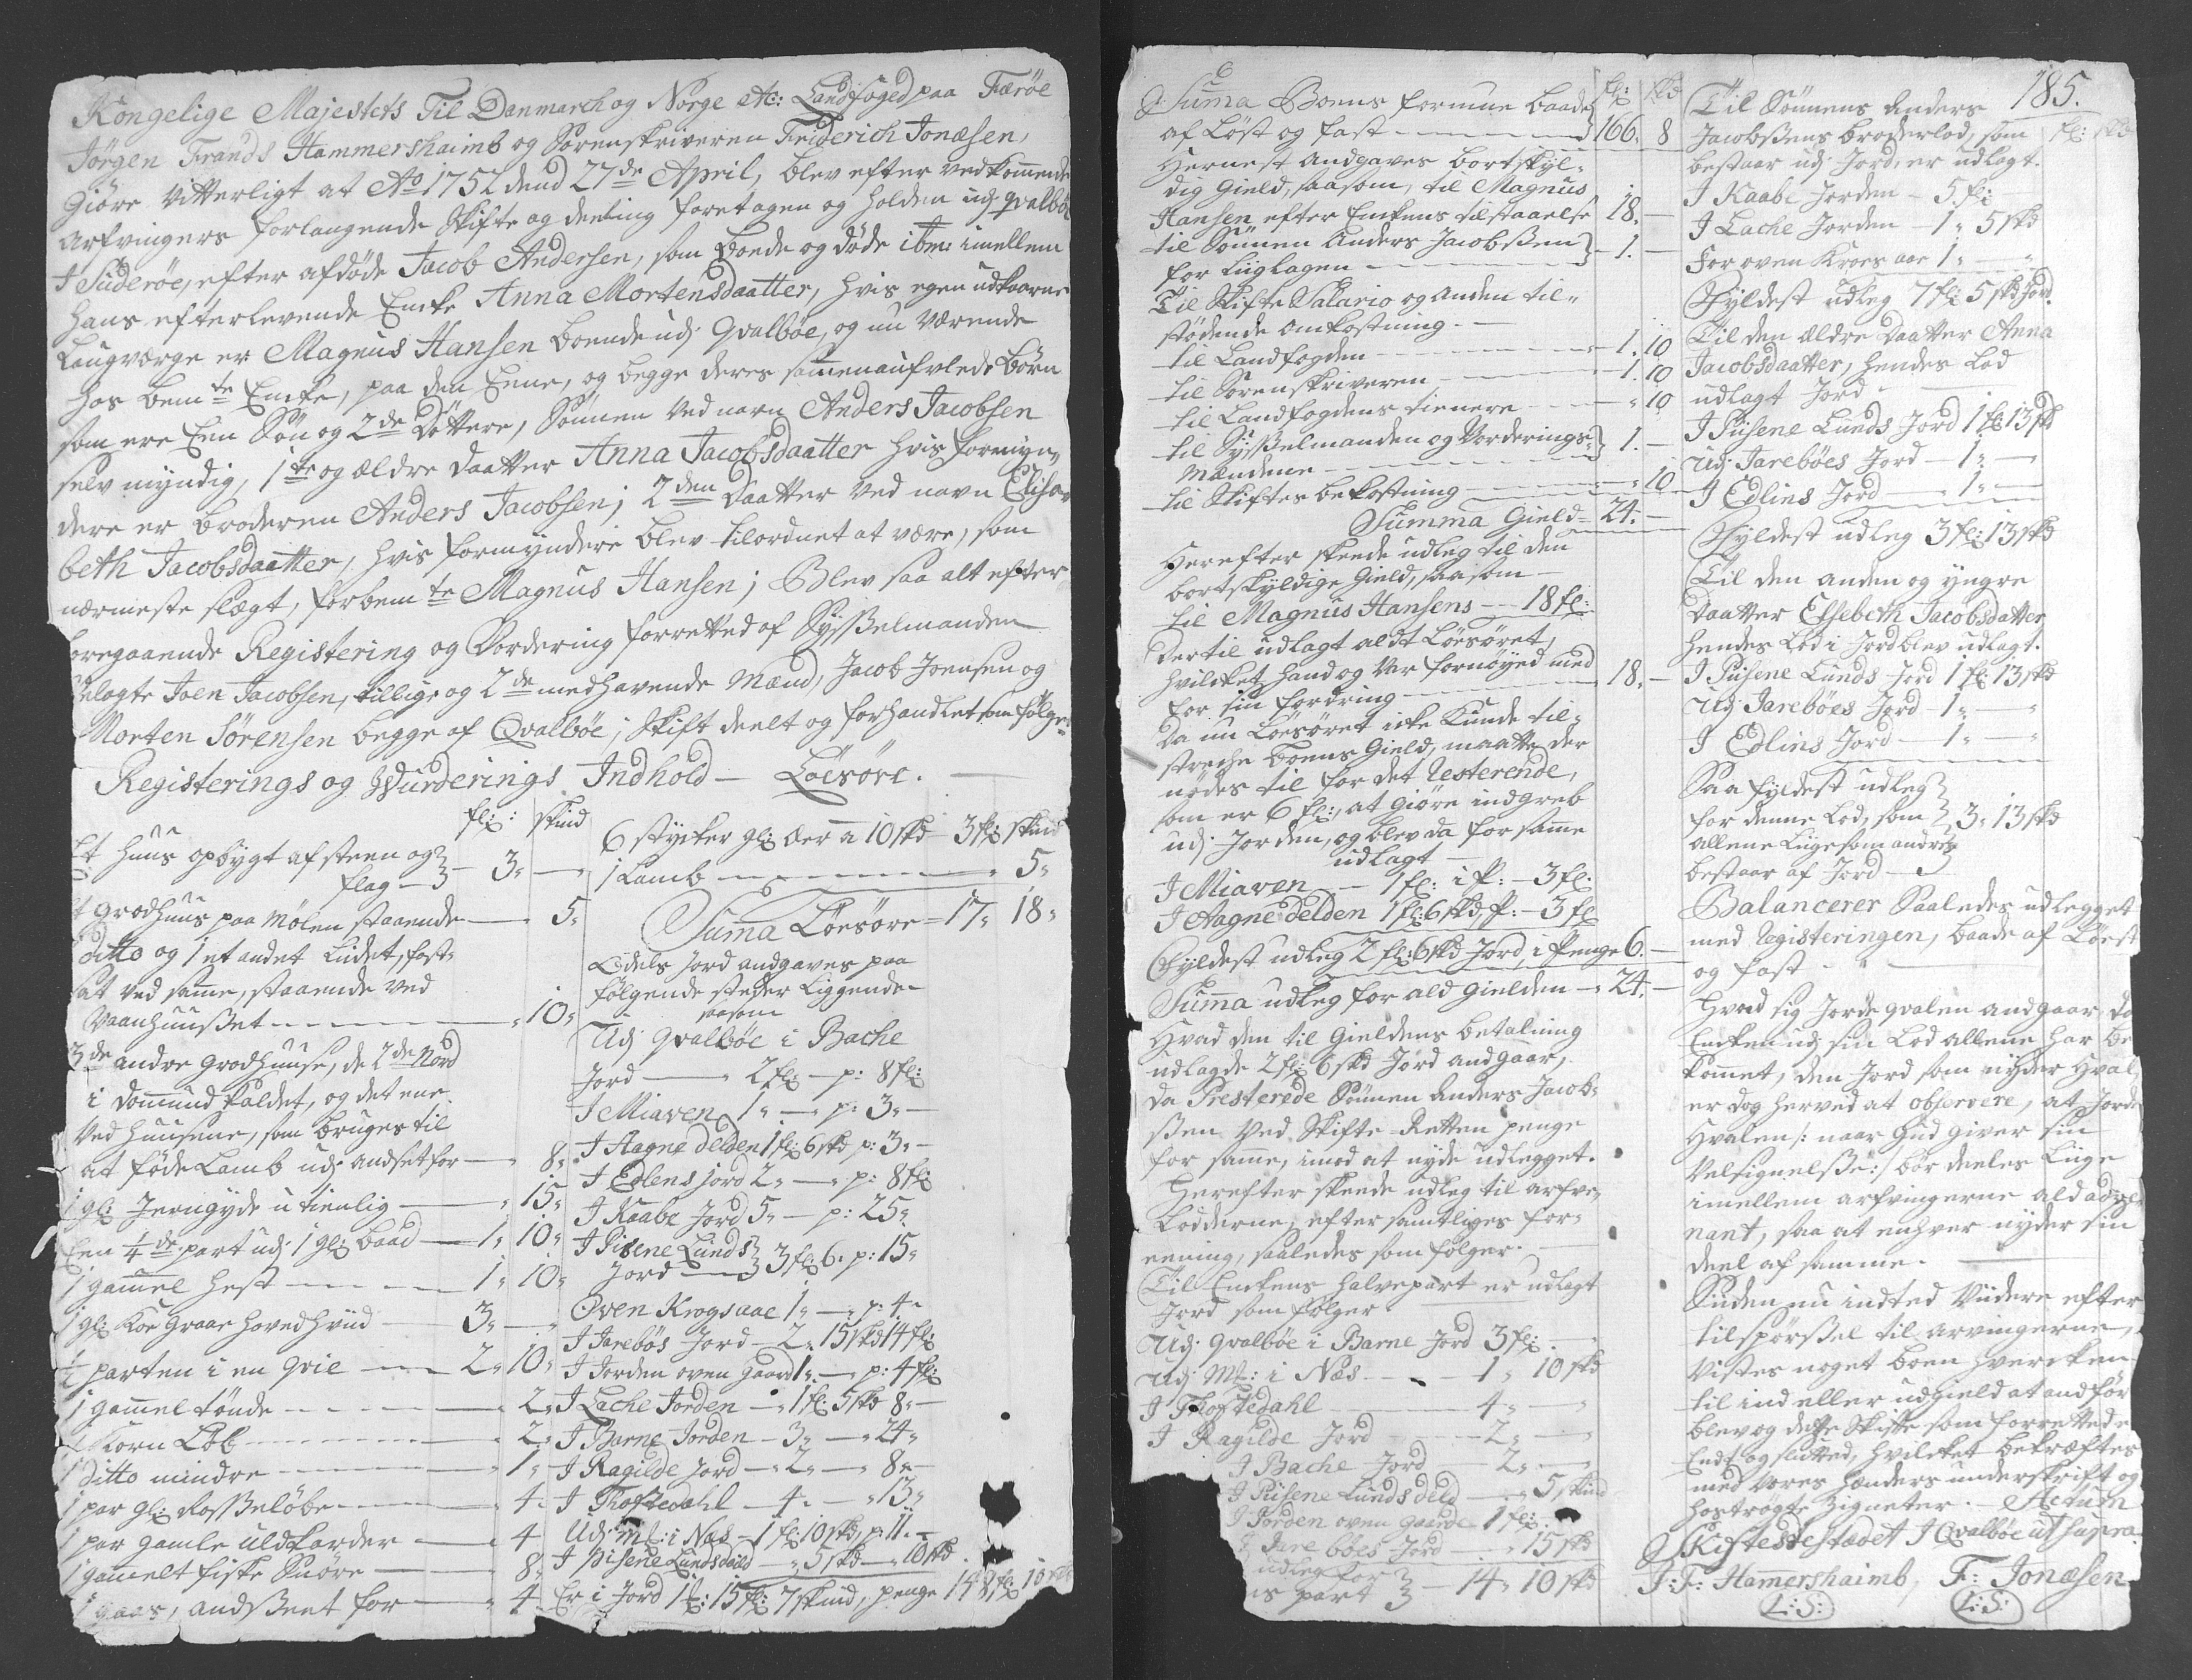 Kongelige Majestets Til Danmarch og Norge etc: Landfoged paa Færöe
Jörgen Frands Hammershaimb og Sorenskriveren Friderich Jonæsen,
Giöre Vitterligt at Ao 1752 dend 27de April, blev efter vedkommende
Arfvingers forlangende Skifte og deeling foretagen og holden udj qvalböe
J Suderöe, efter afdöde Jacob Andersen, som boede og döde ibm: imellem
hans efterlevende Encke Anna Mortensdaatter, hvis egen udkaarne
Laugværge er Magnus Hansen boende udj Qvalböe, og nu værende
hos bemte Encke, paa den Eene, og begge deres sammenauflede börn
som ere Een Sön og 2de Döttere, Sönnen ved navn Anders Jacobsen
selv myndig, 1te og ældre daatter Anna Jacobsdaatter hvis formyn-
dere er broderen Anders Jacobsen; 2den daatter ved navn Elisa-
beth Jacobsdaatter, hvis formyndere blev tilordnet at være, som
nærmeste slægt, forbemte Magnus Hansen; Blev saa alt efter
foregaaende Registering og Vordering forretted af Sysselmanden
Velagte Joen Jacobsen, tillige og 2de medhavende Mænd, Jacob Joensen og
Morten Sörensen begge af Qvalböe; Skift deelt og forhandlet som fölger
Registerings og Wurderings Indhold — Löesöre.
fl: skind
Et huus opbygt af steen og
flag — 3 „ —
Et Grodhuus paa Mölen staaende — 5 „
ditto og 1 et andet lidet, fast-
sat ved samme, staaende ved
Vaanhuusset — „ 10 „
3de andre Grodhuuse, de 2de Nord
i Dommund kaldet, og det ene
ved huusene, som bruges til
at föde Lamb udj andset for — 8 „
1 gl: Jerngryde utienlig — „ 15 „
Een 1/4de part udj 1 gl: baad — 1 „ 10 „
1 gammel hest — 1 „ 10 „
1 gl: Koe Graae hovedhviid — 3 „ — „
1/2 parten i en qvie — 2 „ 10 „
1 gammel tönde — „ 2 „
1 Korn Löb — „ 2 „
1 ditto mindre — „ 1 „
1 par gl: Rosselöbe — „ 4 „
1 par gamle uldkarder — „ 4
1 gammelt fiske Snöre — 8 „
1 gaas, andsseet for — „ 4
6 stycker gl: Aer a 10 skd 3 fl: skind
1 Lamb — „ 5 „
Suma Löesöre = 17 „ 18 „
Odels Jord andgaves paa
fölgende steder liggende
saasom
Udj qvalböe i Bache
Jord — 2 fl: — p: 8 fl:
J Miaven 1 „ — „ p: 3 „ —
J Aagne delden 1 fl: 6 skd p: 3 „ —
J Edlens jord 2 „ — „ p: 8 fl:
J Kaabe Jord 5 „ — p: 25 „
J Pisene Lunds
Jord — 3 fl 6. p: 15 „
Oven Krogsaae 1 „ — „ p: 4 „
J Jarebös Jord — 2 „ 15 skd 14 fl:
J Jorden oven Gaard 1 „ — p: 4 fl:
J Lache Jorden — 1 fl: 5 skd 8 „ —
J Barne Jorden — 3 „ — „ 24 „
J Ragilde Jord — 2 „ — „ 8 „ —
J Thoftedahl — 4 „ — „ 13 „
Udj Ml: i Næs — 1 fl: 10 skd p: 11 „ —
J pisene Lundsdeild — „ 5 skd — „ 10 skd
Er i Jord 1 : 15 fl: 7 skind, penge 148 fl: 10
fl: skd
Suma Boens formue baade
af Löst og fast — 166. 8
Hernest andgaves bortskyl-
dig Gield, saasom, til Magnus
Hansen efter Enckens tilstaaelse 18. —
til Sönnen Anders Jacobssen
for Liiglagen — 1. —
Til Skifte Salario og anden til-
stödende omkostning. —
til Landfogden — 1. 10
til Sorenskriveren — 1. 10
til Landfogdens tienere — „ 10
til Sysselmanden og Vorderings-
Mændene — 1. —
til Skiftes bekostning — „ 10
Summa Gield = 24. —
Herefter skeede udleg til den
bortskyldige Gield, saasom —
til Magnus Hansens — 18 fl:
dertil udlagt aldt Löesöret,
hvilcket hand og var fornöyed med
for sin fordring — 18. —
da nu Löesöret icke kunde til-
streche boens Gield, maatte der
nödes til for det resterende,
som er 6 fl:, at giöre indgreb
udj Jorden, og blev da for samme
udlagt —
J Miaven — 1 fl: i P: — 3 fl:
J Aagne delden 1 fl: 6 skd P: — 3 fl
Fyldest udleg 2 fl: 6 skd Jord, i Penge 6. —
Summa udleg for ald gielden — 24. —
Hvad den til Gieldens betalning
udlagde 2 fl: 6 skd Jord andgaar,
da Presterede Sönnen Anders Jacob-
ssen ved Skifte-Retten penge
for samme, imod at nyde udlegget.
Herefter skeede udleg til arfve-
Lodderne, efter samtliges for-
eening, saaledes som fölger. —
Til Enckens halvepart er udlagt
Jord som fölger
Udj Qvalböe i Barne Jord 3 fl:
Udj Ml: i Næs — 1 „ 10 skd
J Thoftedahl — 4 „ „
J Ragilde Jord — 2 „ — „
J Bache Jord — 2 „ — „
J Piisene Lunds deld — „ 5 skind
J Jorden oven Gaarde 1 fl:
J Jareböes Jord — „ 15 skd
udleg for
part — 14 „ 10 skd
185.
fl: skd
Til Sönnens Anders
Jacobssens broderlod, som
bestaar udj Jord, er udlagt.
J Kaabe Jorden — 5 fl:
J Lache Jorden — 1 „ 5 skd
For oven Kroes aae 1 „ — „
Fyldest udleg 7 fl: 5 skd Jord.
Til den ældre daatter Anna
Jacobsdaatter, hendes Lod
udlagt Jord
J Piisene Lunds Jord 1 fl: 13 skd
Udj Jareböes Jord — 1 „ — „
J Edlins Jord — 1 „ —
Fyldest udleg 3 fl: 13 skd
Til den anden og yngre
daatter Elsebeth Jacobsdatter
hendes Lod i Jord blev udlagt.
J Piisene Lunds Jord 1 fl: 13 skd
Udj Jareböes Jord — 1 „ — „
J Edlins Jord — 1 „ „
Saa fyldest udleg
for denne Lod, som 3 „ 13 skd
allene liigesom andre
bestaar af Jord —
Balancerer Saaledes udlegget
med Registeringen, baade af Löest
og fast —
Hvad sig Jorde qvalen andgaar da
Encken udj sin Lod allene har be-
kommet, den Jord som nyder Hval,
er dog herved at observere, at Jorde
Hvalen /: naar Gud giver sin
Velsignelsse:/ bör deeles liige
imellem arfvingerne ald advé-
nant, saa at enhver nyder sin
deel af samme. —
Siiden nu indted viidere efter
tilspörssel til arvingerne,
vistes noget boen hvercken
til ind eller udgield at andför
blev og dette Skifte som forrettede
Endt og slutted, hvilcket bekræftes
med vores hænders underskrift og
hoströgte Zigneter. — Actum
Skiftestestædet J Qvalböe ut supra.
J: F: Hamershaimb, F: Jonæsen
L:S: L:S: